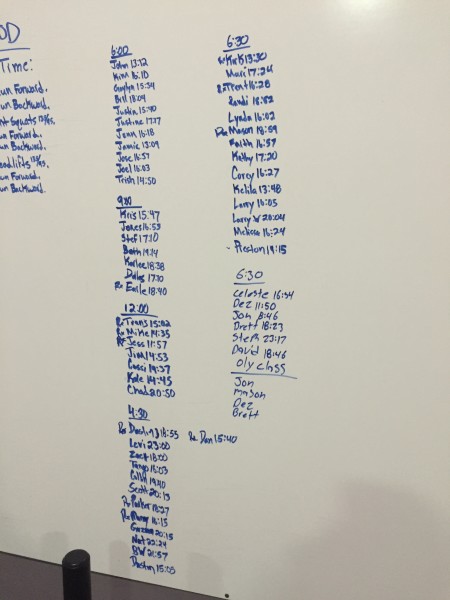 OD
Time:
un Forward.
un Backward.
nt Squats
un Forward.
un Backward.
eadlifts
un Forward.
un Backward.
6:00
John 13:12
Kim 16:10
15:54
Bill 18:04
Justin 15:40
Justine 17:17
Jenn 16:18
Jamie 13:09
Jose 16:57
Joel 16:03
Trish 14:50
9:00
Kris 15:47
James 16:53
Stef 17:10
Beth 19:14
Karlee 18:38
17:10
Rx Earle 18:40
12:00
Rx Travis 15:02
Rx Mike 14:35
Rx Jess 11:57
Jim 14:53
19:37
Kate 14:45
Chad 20:50
4:30
Rx 16:55 Rx Dan 15:40
Levi 23:00
Zack 18:00
16:03
19:40
Scott 20:13
Rx 18:27
Rx 16:15
20:15
Nat 22:24
BW 21:57
15:03
6:30
Kirk 13:30
Mari 17:24
Rx Trent 16:28
Randi 18:02
Lynda 16:02
Rx Mason 18:59
Faith 16:57
Kathy 17:20
Corey 16:27
Kelila 13:48
Larry 16:05
Larry W 20:04
Melissa 16:24
- Preston 19:15
6:30
Celeste 16:54
Dez 11:50
Jon 8:46
Brett 18:23
Steph 23:17
David 18:46
Oly class
Jon
Mason
Dez
Brett